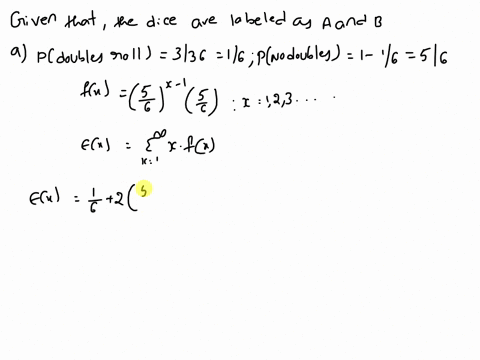 Given that, the dice are labeled as A and B
a) P(doubles roll) = 3/36 = 1/6 ; P(No doubles) = 1 - 1/6 = 5/6
f(x) = (5/6)^{x-1} (5/6) : x = 1,2,3......
E(x) = ∑_{x=1}^{∞} x. f(x)
E(x) = 1/6 + 2(5